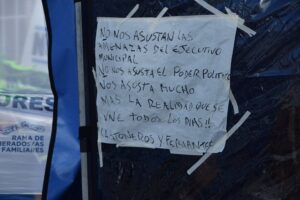 NO NOS ASUSTAN LAS
AMENAZAS DEL EJECUTIVO
MUNICIPAL
NO NOS ASUSTA EL PODER POLITICO
NOS ASUSTA MUCHO
MAS LA REALIDAD QUE SE
VIVE TODOS LOS DIAS!!
Y FERIANTES
ORES
RAMA DE
ERADOS/AS
FAMILIARES